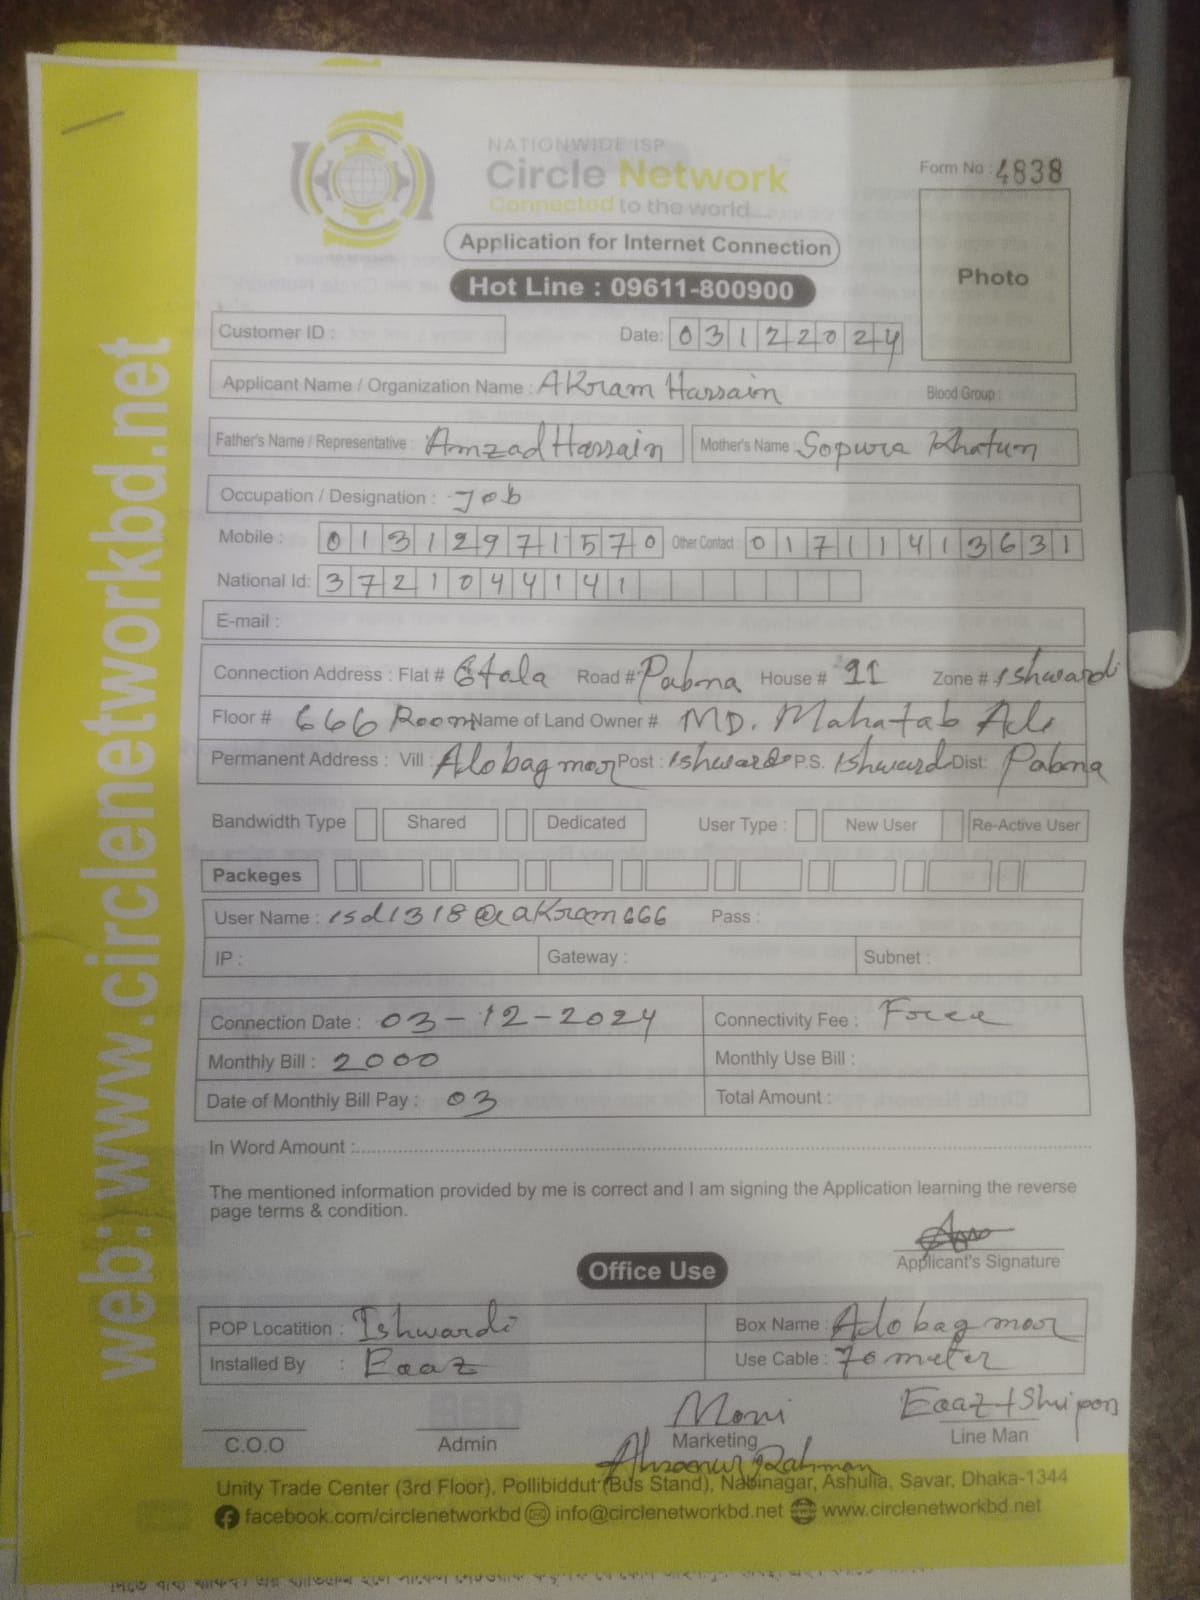 NATIONWIDE ISP
Circle Network
Connected to the world....
Form No : 4838
Application for Internet Connection
Photo
Hot Line : 09611-800900
Customer ID :
Date: 03122024
Applicant Name / Organization Name : AKram Hassain
Blood Group :
Father's Name / Representative : Amzad Hassain Mother's Name : Sopura Khatun
Occupation / Designation : Job
Mobile : 01312971570 Other Contact : 01711413631
National Id: 3721044141
E-mail :
Connection Address : Flat # 6tala Road # Pabna House # 11 Zone # Ishwardi
Floor # 666 Room Name of Land Owner # MD. Mahatab Ali
Permanent Address : Vill : Alobag moor Post : Ishwardi P.S. Ishwardi Dist: Pabna
Bandwidth Type Shared Dedicated User Type : New User Re-Active User
Packeges
User Name : isd1318@akram666 Pass :
IP : Gateway : Subnet :
Connection Date : 03-12-2024 Connectivity Fee : Free
Monthly Bill : 2000 Monthly Use Bill :
Date of Monthly Bill Pay : 03 Total Amount :
In Word Amount :
The mentioned information provided by me is correct and I am signing the Application learning the reverse
page terms & condition.
Applicant's Signature
Office Use
POP Locatition : Ishwardi Box Name : Alobag moor
Installed By : Eaaz Use Cable : 70 meter
Moni Eaaz+Shipon
C.O.O Admin Marketing Line Man
Rahman
Unity Trade Center (3rd Floor), Pollibiddut (Bus Stand), Nabinagar, Ashulia, Savar, Dhaka-1344
facebook.com/circlenetworkbd info@circlenetworkbd.net www.circlenetworkbd.net
web: www.circlenetworkbd.net